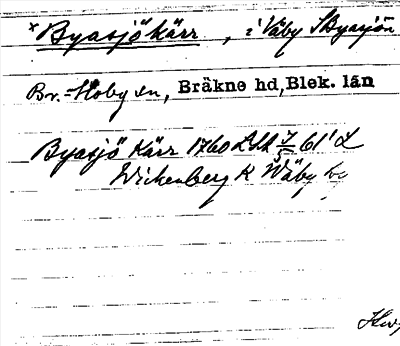 *Byasjökärr, i Väby S Byasjön
Br.-Hoby sn, Bräkne hd, Blek. län
Byasjö Kärr 1760 LSA 61' L
Wickenberg K Wäby by